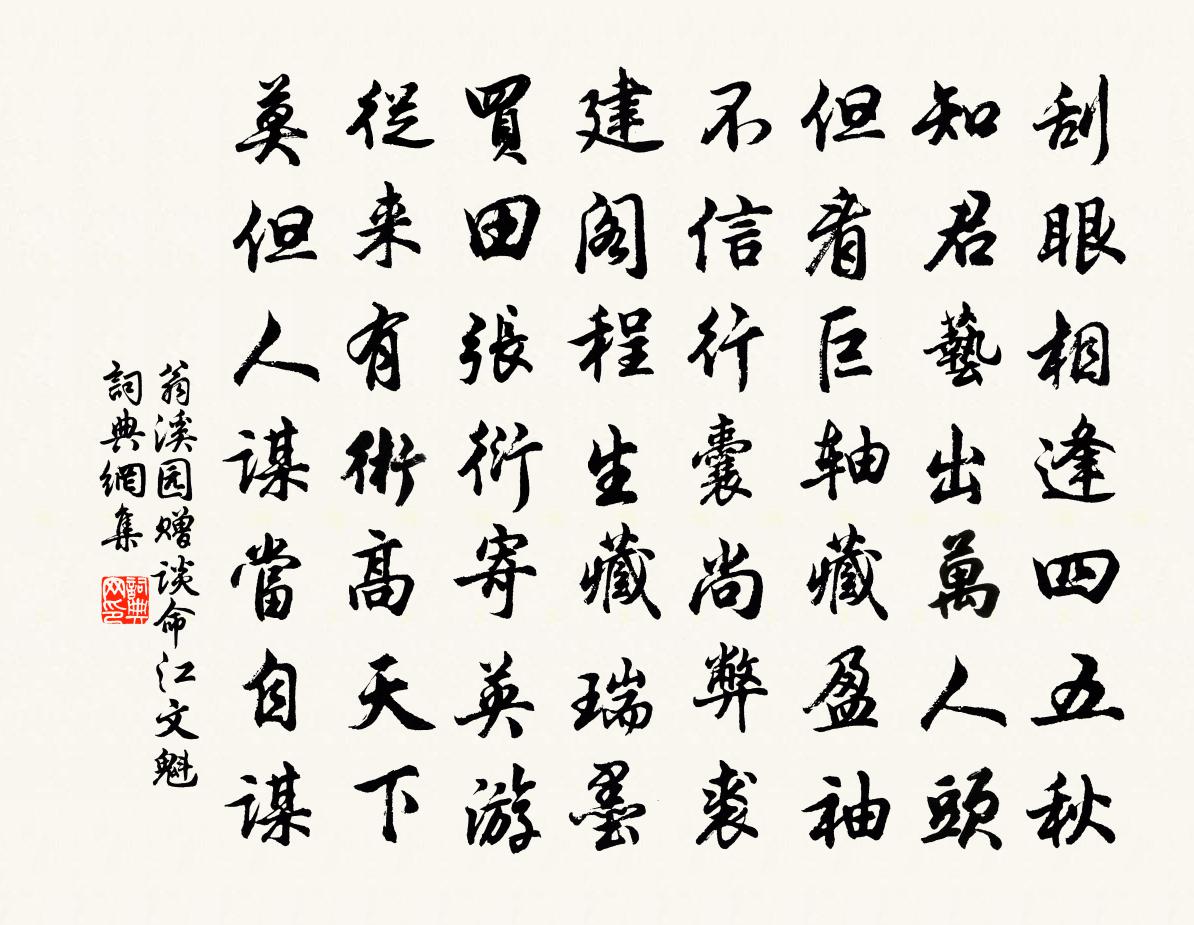 刮眼相逢四五秋
知君藝出萬人頭
但看巨轴藏盈袖
不信行囊尚弊裘
建阁程生藏瑞墨
買田張衍寄英游
從来有術高天下
莫但人谋當自谋
翁溪园赠谈命江文魁
詞典網集